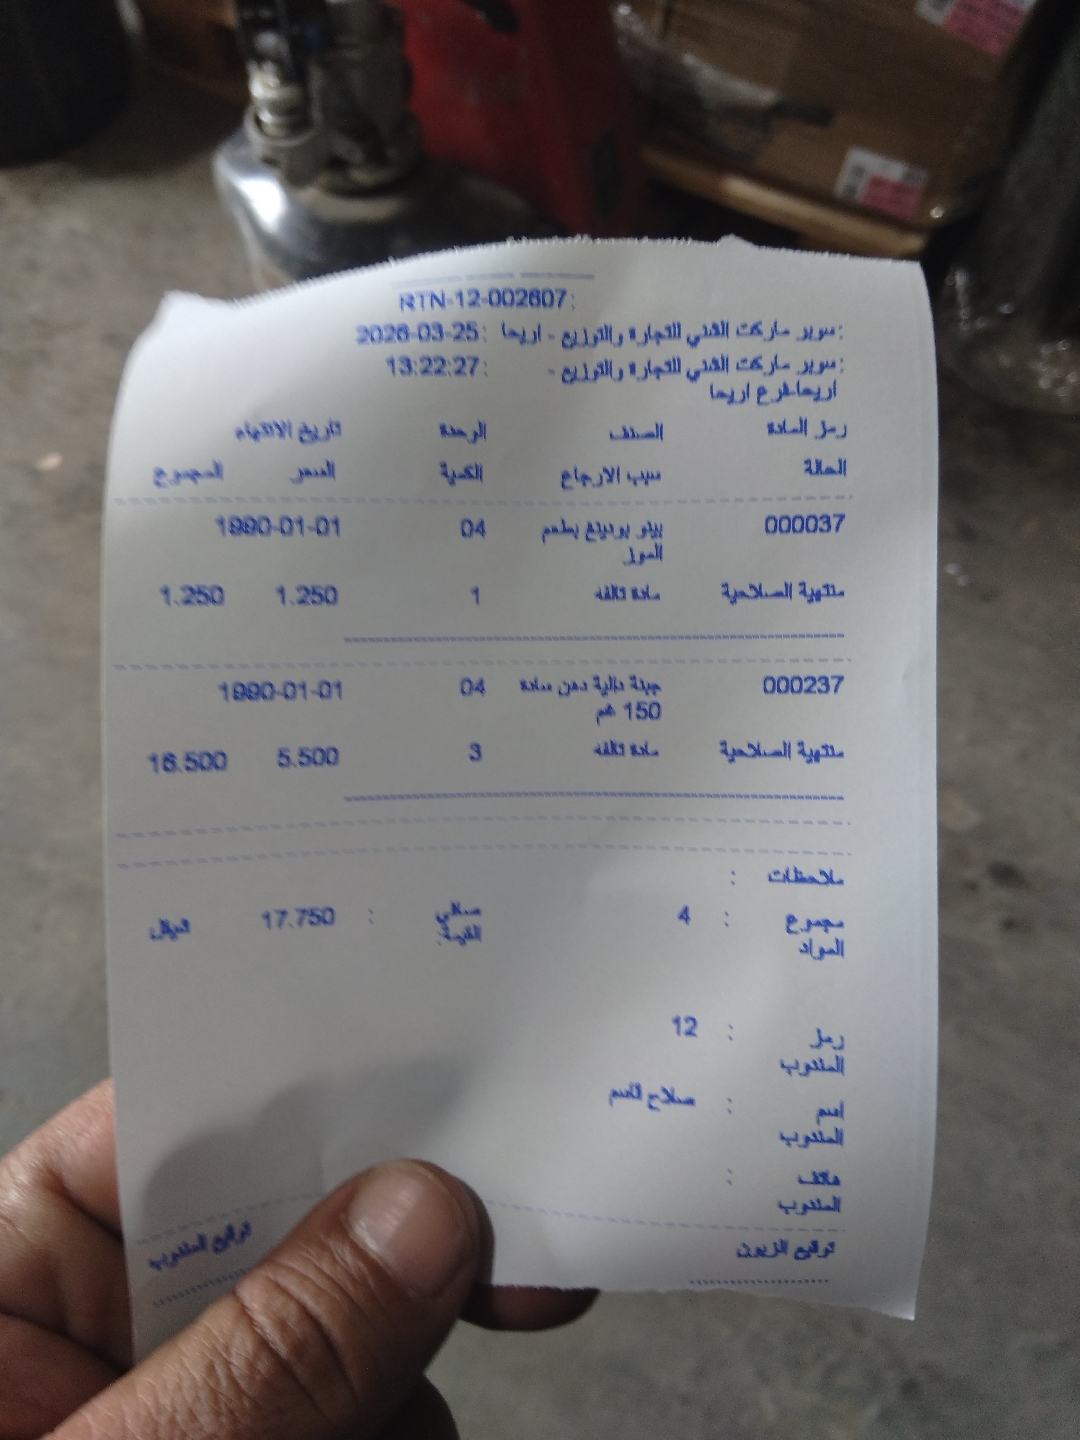 RTN-12-002607:
سوبر ماركت الشني للتجارة والتوزيع - اريحا: 2026-03-25:
سوبر ماركت الشني للتجارة والتوزيع -: 13:22:27:
اريحا-فرع اريحا
رمز المادة الصنف الوحدة تاريخ الانتهاء
الحالة سبب الارجاع الكمية السعر المجموع
000037 بينو بودينغ بطعم 04 1990-01-01
الموز
منتهية الصلاحية مادة تالفه 1 1.250 1.250
000237 جبنة دالية دهن سادة 04 1990-01-01
150 غم
منتهية الصلاحية مادة تالفه 3 5.500 16.500
ملاحظات :
مجموع : 4 صافي : 17.750 شيقل
المواد القيمة:
رمز : 12
المندوب
اسم : صلاح قاسم
المندوب
هاتف :
المندوب
توقيع الزبون توقيع المندوب